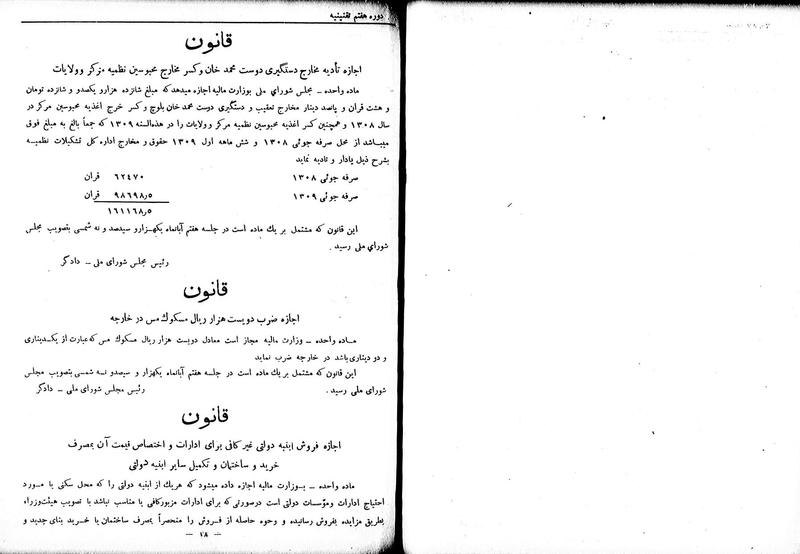 دوره هفتم تقنینیه
قانون
اجازه تأدیه مخارج دستگیری دوست محمد خان وکسر مخارج محبوسین نظمیه مرکز وولایات
ماده واحده ــ مجلس شورای ملی بوزارت مالیه اجازه میدهد که مبلغ شانزده هزارو یکصدو و شانزده تومان
و هشت قران و پانصد دینار مخارج تعقیب و دستگیری دوست محمد خان بلوچ و کسر خرج اغذیه محبوسین مرکز در
سال ۱۳۰۸ و همچنین کسر اغذیه محبوسین نظمیه مرکز وولایات را در هذه‌السنه ۱۳۰۹ که جمعاً بالغ به مبلغ فوق
میباشد از محل صرفه جوئی ۱۳۰۸ و شش ماهه اول ۱۳۰۹ حقوق و مخارج اداره کل تشکیلات نظمیه
بشرح ذیل پادار و تادیه نماید
صرفه جوئی ۱۳۰۸ ۶۲۴۷۰ قران
صرفه جوئی ۱۳۰۹ ۹۸۶۹۸٫۵ قران
۱۶۱۱۶۸٫۵
این قانون که مشتمل بر یك ماده است در جلسه هفتم آبانماه یکهزارو سیصد و نه شمسی بتصویب مجلس
شورای ملی رسید .
رئیس مجلس شورای ملی ــ دادگر
قانون
اجازه ضرب دویست هزار ریال مسکوك مس در خارجه
ماده واحده ــ وزارت مالیه مجاز است معادل دویست هزار ریال مسکوك مس که عبارت از یکدیناری
و دو دیناری باشد در خارجه ضرب نماید
این قانون که مشتمل بر یك ماده است در جلسه هفتم آبانماه یکهزار و سیصدو نه شمسی بتصویب مجلس
شورای ملی رسید . رئیس مجلس شورای ملی ــ دادگر
قانون
اجازه فروش ابنیه دولتی غیر کافی برای ادارات و اختصاص قیمت آن بمصرف
خرید و ساختمان و تکمیل سایر ابنیه دولتی
ماده واحده ــ بوزارت مالیه اجازه داده میشود که هریك از ابنیه دولتی را که محل سکنی یا مورد
احتیاج ادارات ومؤسسات دولتی است درصورتی که برای ادارات مزبورکافی یا مناسب نباشد با تصویب هیئت‌وزراء
بطریق مزایده بفروش رسانیده و وجوه حاصله از فروش را منحصراً بمصرف ساختمان یا خرید بنای جدید و
ــ ۷۸ ــ